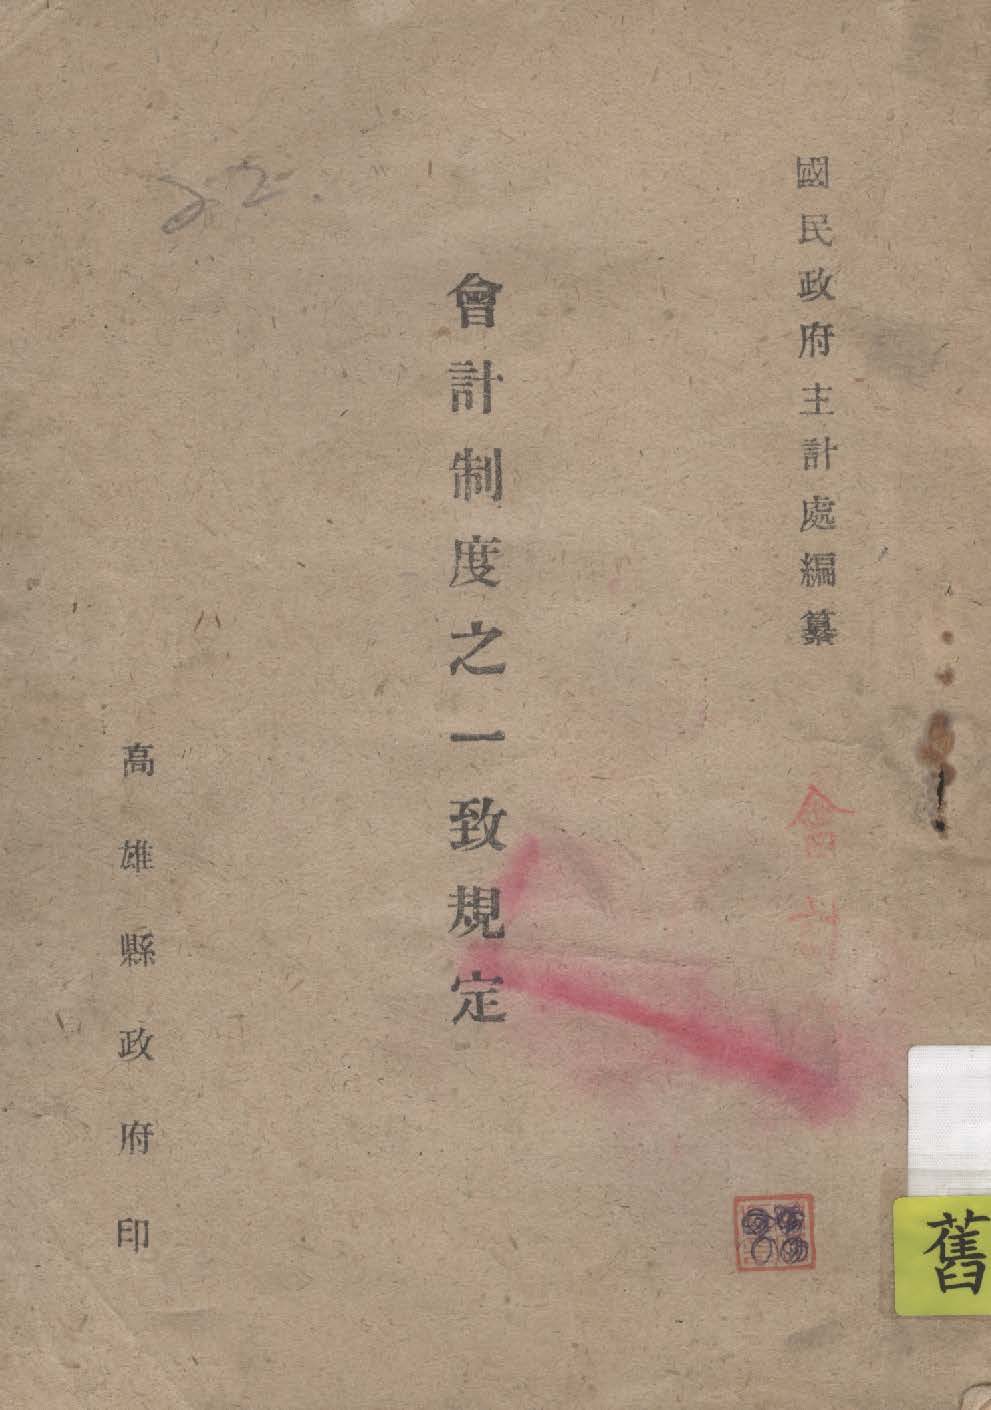 國民政府主計處編纂
會計
會計制度之一致規定
高雄縣政府印
22.
舊